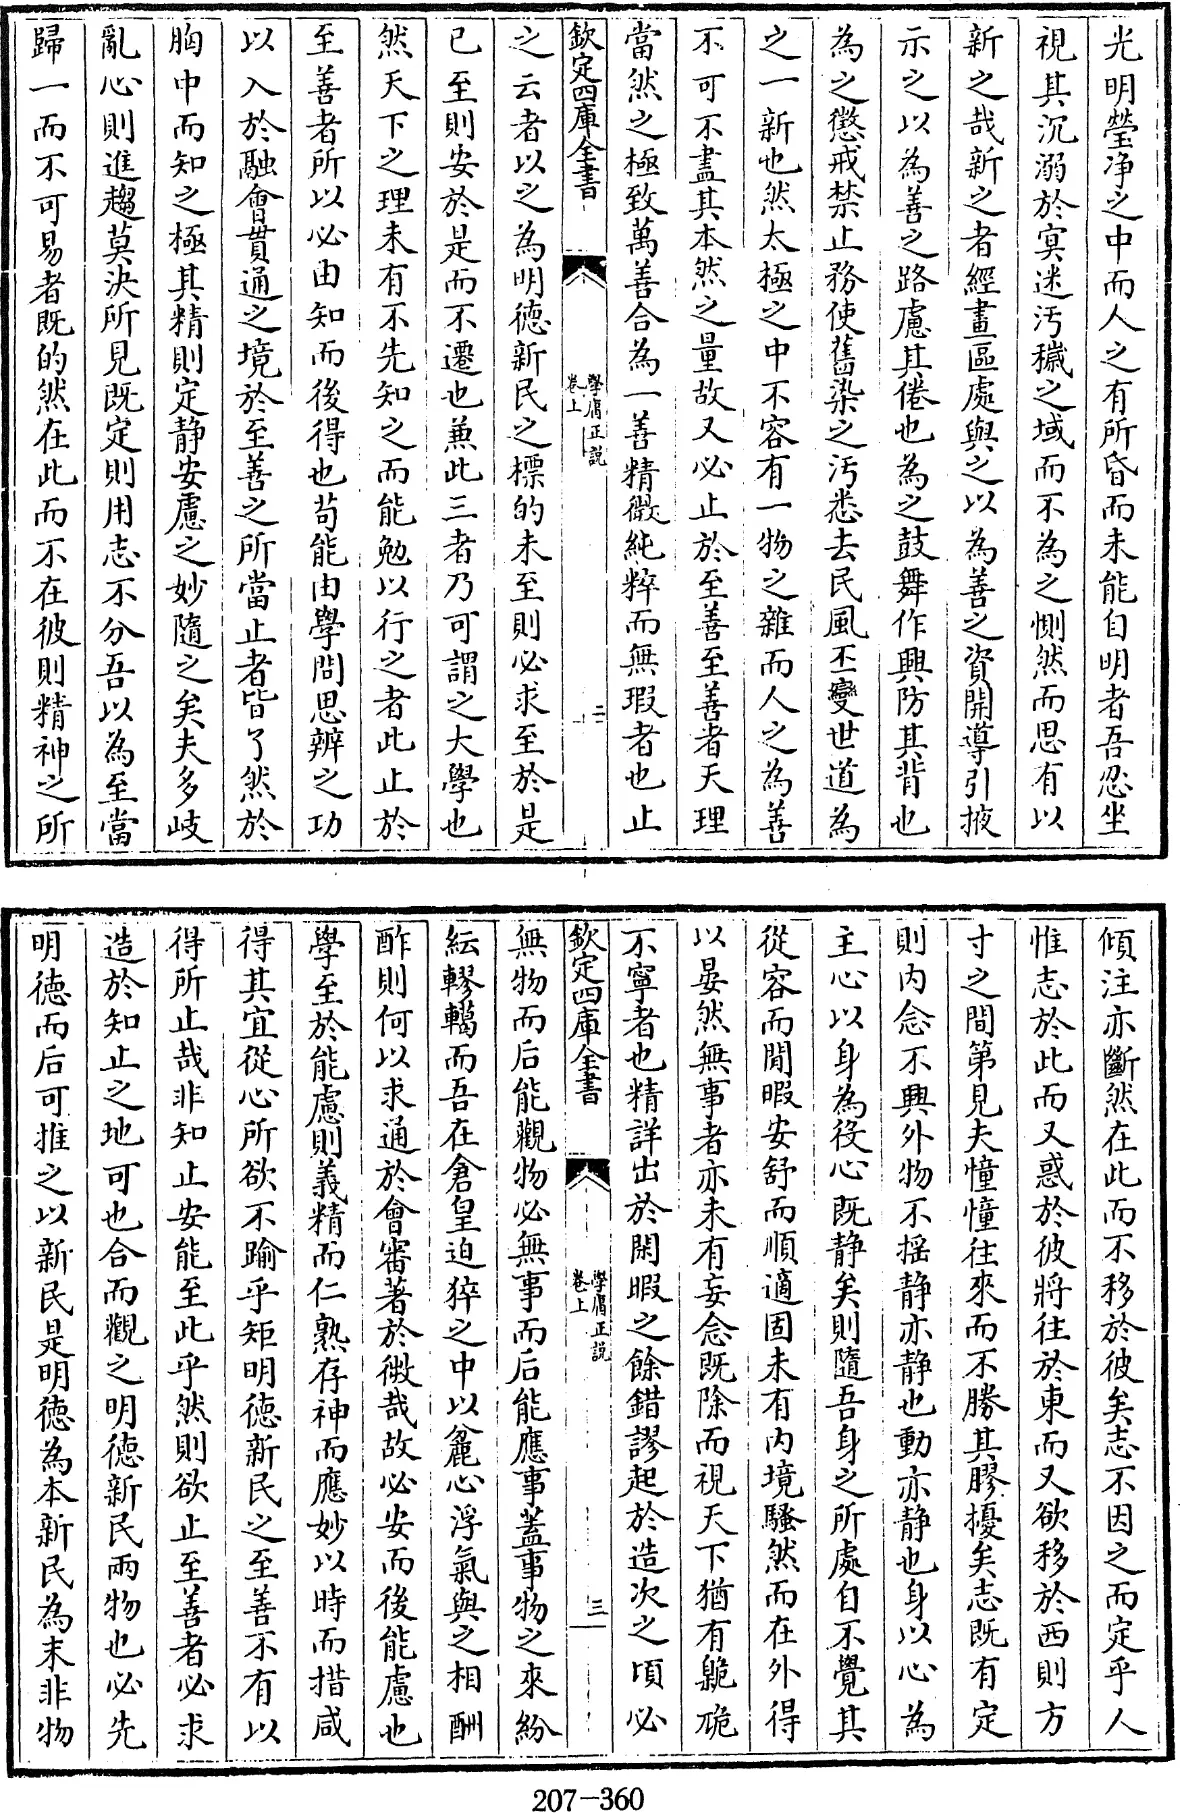 光明瑩净之中而人之有所昏而未能自明者吾忍坐
視其沉溺於㝠迷汚穢之域而不為之惻然而思有以
新之哉新之者經畫區處與之以為善之資開導引掖
示之以為善之路慮其倦也為之鼓舞作興防其背也
為之懲戒禁止務使舊染之汚悉去民風丕變世道為
之一新也然太極之中不容有一物之雜而人之為善
不可不盡其本然之量故又必止於至善至善者天理
當然之極致萬善合為一善精微純粹而無瑕者也止
欽定四庫全書
學庸正説
卷上
二
之云者以之為明德新民之標的未至則必求至於是
已至則安於是而不遷也兼此三者乃可謂之大學也
然天下之理未有不先知之而能勉以行之者此止於
至善者所以必由知而後得也苟能由學問思辨之功
以入於融會貫通之境於至善之所當止者皆了然於
胸中而知之極其精則定静安慮之妙隨之矣夫多岐
亂心則進趨莫決所見既定則用志不分吾以為至當
歸一而不可易者既的然在此而不在彼則精神之所
傾注亦斷然在此而不移於彼矣志不因之而定乎人
惟志於此而又惑於彼將往於東而又欲移於西則方
寸之間第見夫憧憧往來而不勝其膠擾矣志既有定
則内念不興外物不揺静亦静也動亦静也身以心為
主心以身為役心既静矣則隨吾身之所處自不覺其
從容而閒暇安舒而順適固未有内境騷然而在外得
以晏然無事者亦未有妄念既除而視天下猶有臲硊
不寧者也精詳出於閑暇之餘錯謬起於造次之頃必
欽定四庫全書
學庸正説
卷上
三
無物而后能觀物必無事而后能應事蓋事物之來紛
紜轇轕而吾在倉皇迫猝之中以麄心浮氣與之相酬
酢則何以求通於會審著於微哉故必安而後能慮也
學至於能慮則義精而仁熟存神而應妙以時而措咸
得其宜從心所欲不踰乎矩明德新民之至善不有以
得所止哉非知止安能至此乎然則欲止至善者必求
造於知止之地可也合而觀之明德新民兩物也必先
明德而后可推之以新民是明德為本新民為末非物
207-360